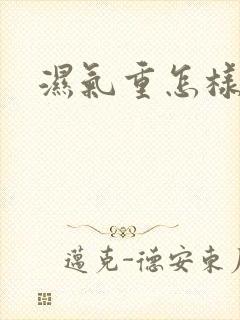 濕氣重怎樣
邁克-德安東